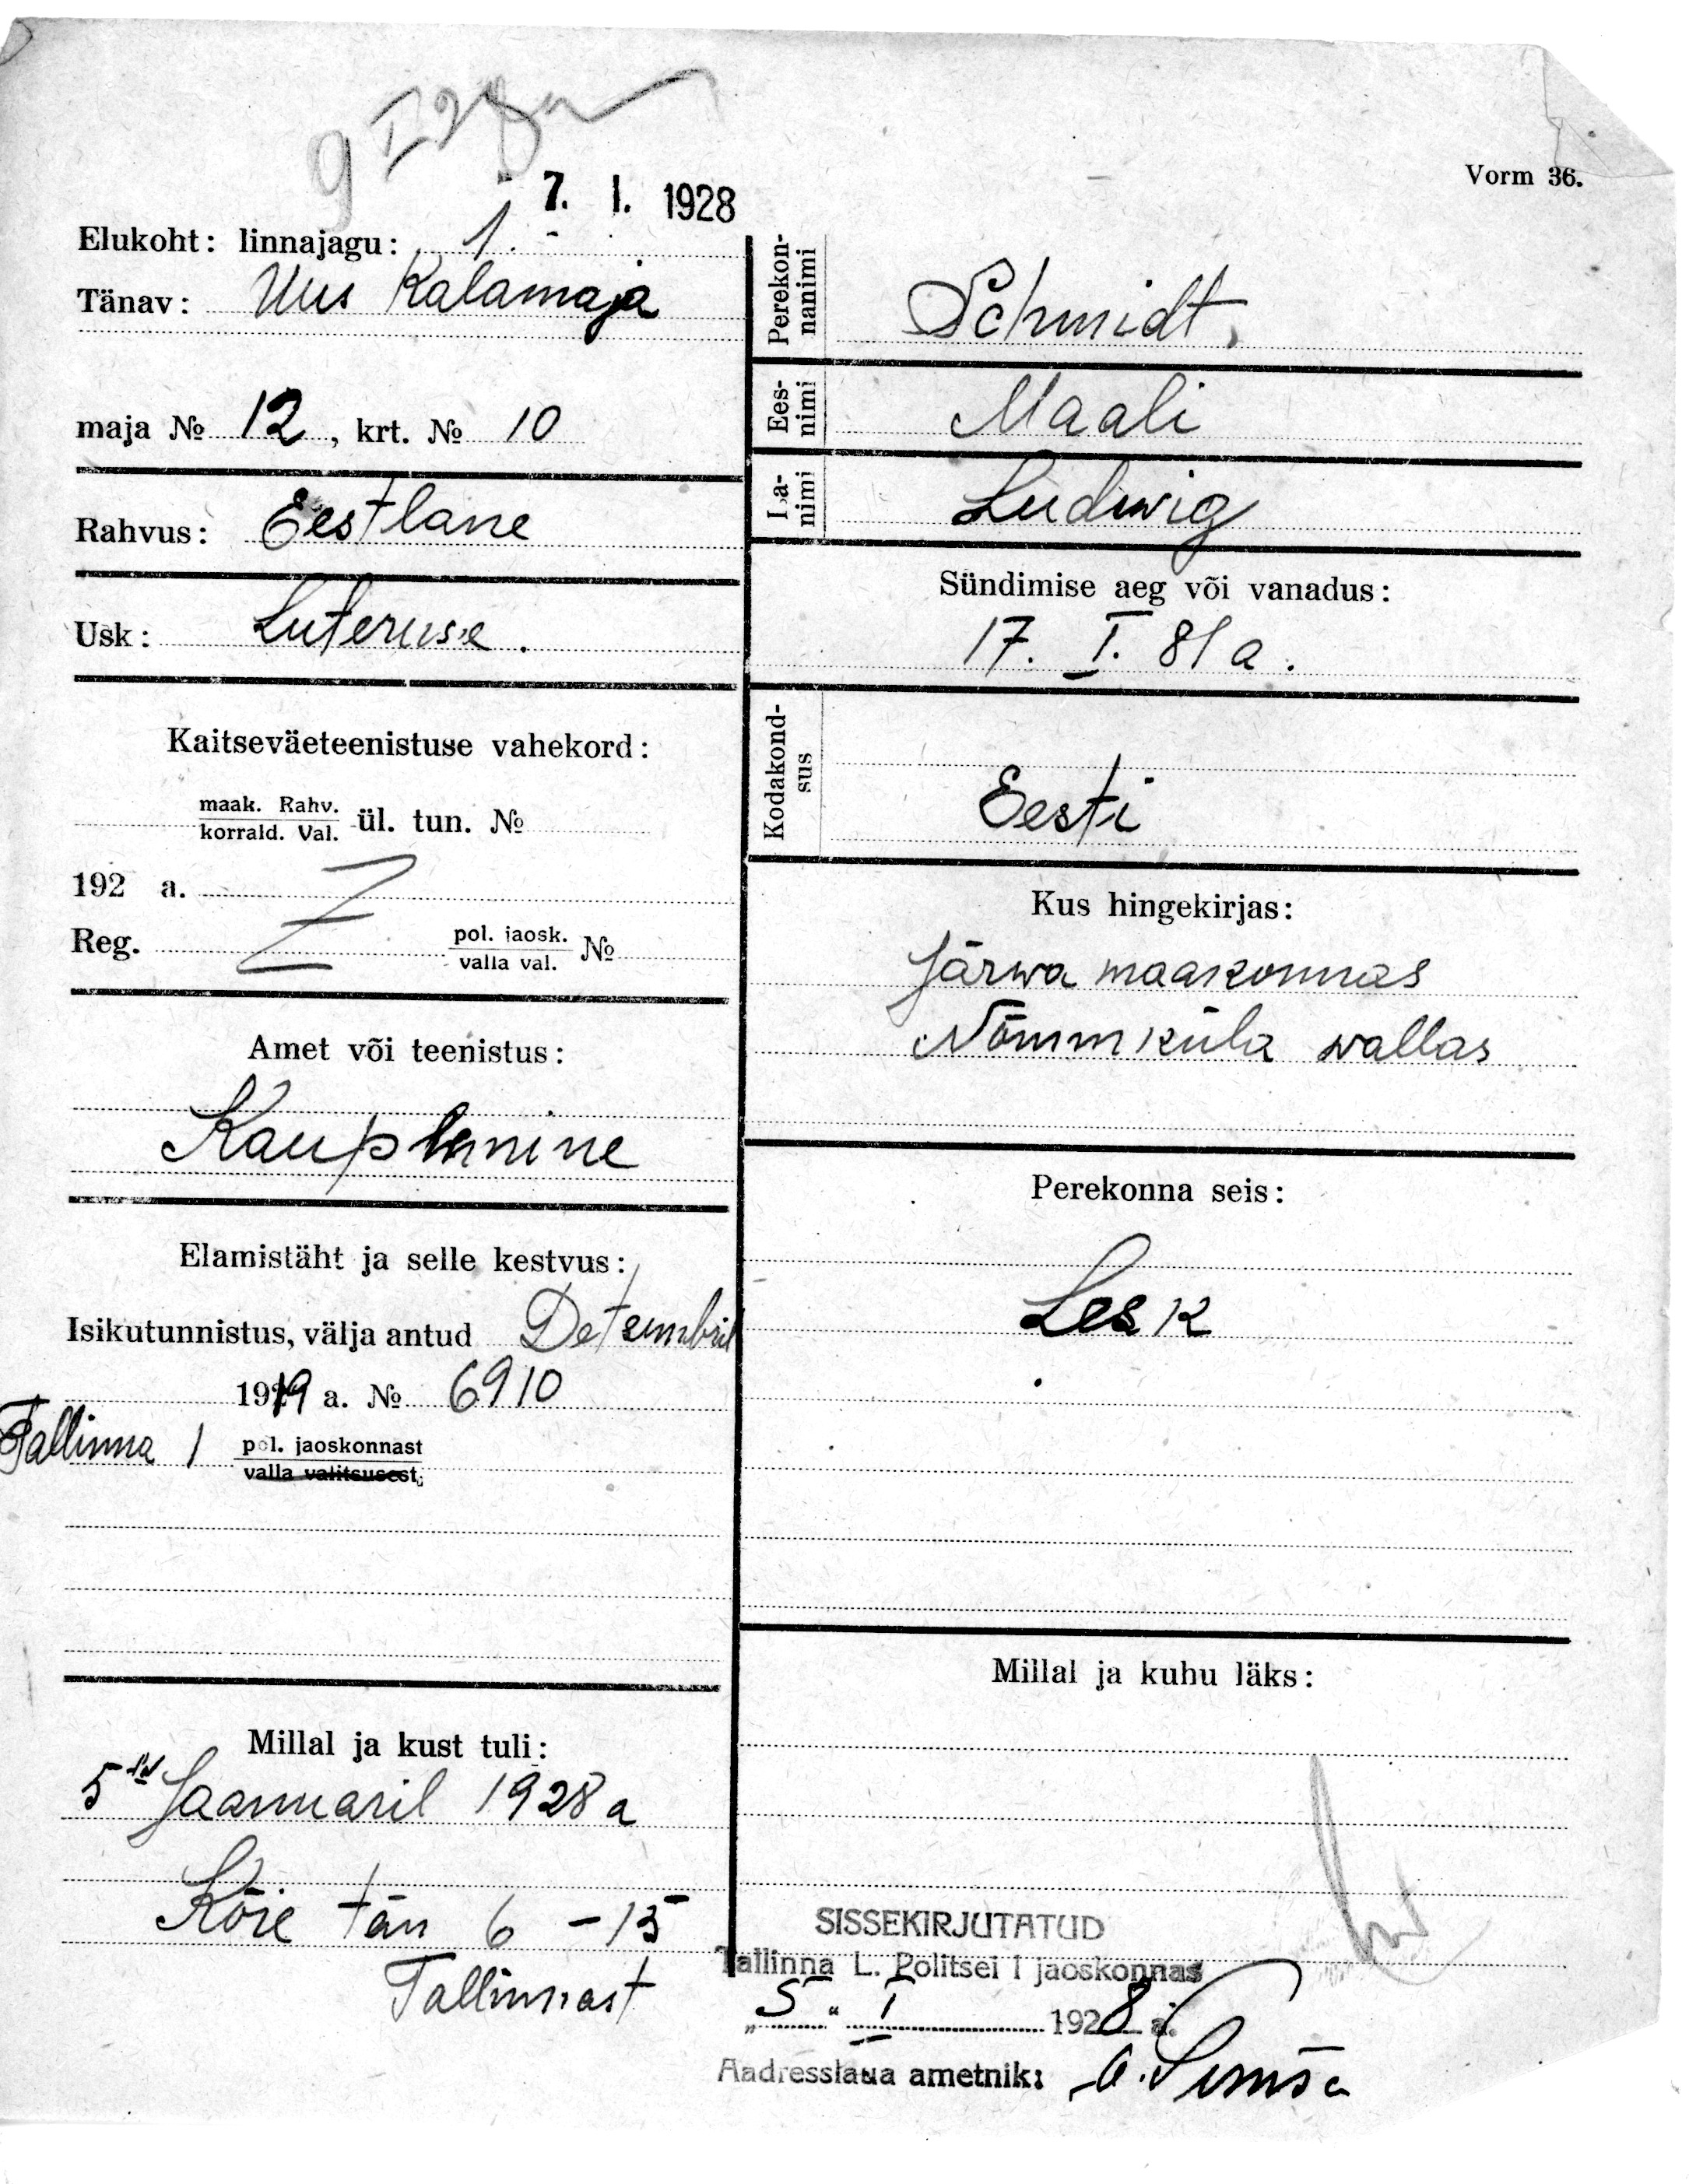 7. I. 1928
Vorm 36.
Elukoht: linnajagu: 1.
Tänav: Uus Kalamaja
maja № 12, krt. № 10
Rahvus: Eestlane
Usk: Luteruse.
Kaitseväeteenistuse vahekord:
maak. Rahv.
korrald. Val. ül. tun. №
192 a.
Reg. pol. jaosk. №
valla val.
Amet või teenistus:
Kauplemine
Elamistäht ja selle kestvus:
Isikutunnistus, välja antud Detsembril
1919 a. № 6910
Tallinna 1 pol. jaoskonnast
valla valitsusest;
Millal ja kust tuli:
5 Jaanuaril 1928 a
Köie tän 6 - 15
Tallinnast
Perekonnanimi
Schmidt,
Eesnimi
Maali
Isanimi
Ludwig
Sündimise aeg või vanadus:
17. I. 81 a.
Kodakondsus
Eesti
Kus hingekirjas:
Järwa maakonnas
Nõmmküla wallas
Perekonna seis:
Lesk
Millal ja kuhu läks:
SISSEKIRJUTATUD
Tallinna L. Politsei I jaoskonnas
„5“ I 1928 a.
Aadresslaua ametnik: